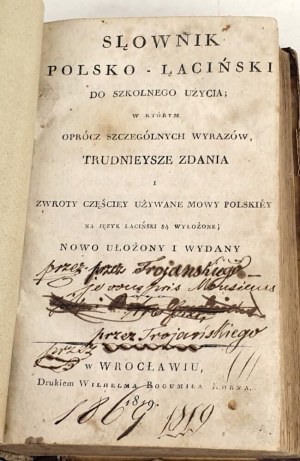 SŁOWNIK
POLSKO - ŁACIŃSKI
DO SZKOLNEGO UŻYCIA;
W KTÓRYM
OPRÓCZ SZCZEGÓLNYCH WYRAZÓW,
TRUDNIEYSZE ZDANIA
I
ZWROTY CZĘŚCIEY UŻYWANE MOWY POLSKIÉY
NA JĘZYK ŁACIŃSKI SĄ WYŁOŻONE;
NOWO UŁOŻONY I WYDANY
przez przez Trojanskiego
przez Trojańskiego
przez
W WROCŁAWIU,
Drukiem WILHELMA BOGUMIŁA KORNA.
1819.
1819